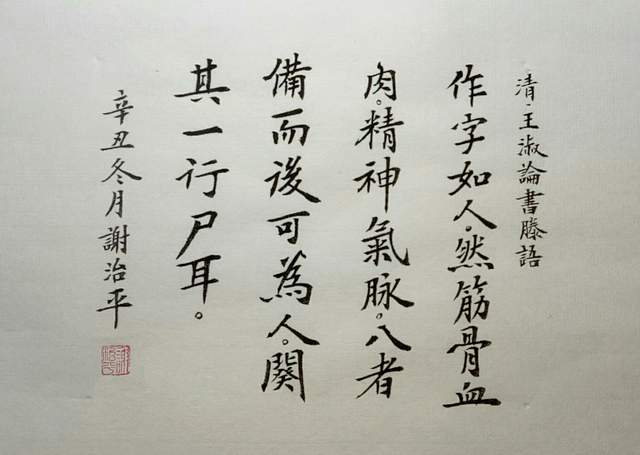 清·王淑論書滕語
作字如人。然筋骨血
肉。精神氣脉。八者
備而後可為人。闋
其一行尸耳。
辛丑冬月謝治平